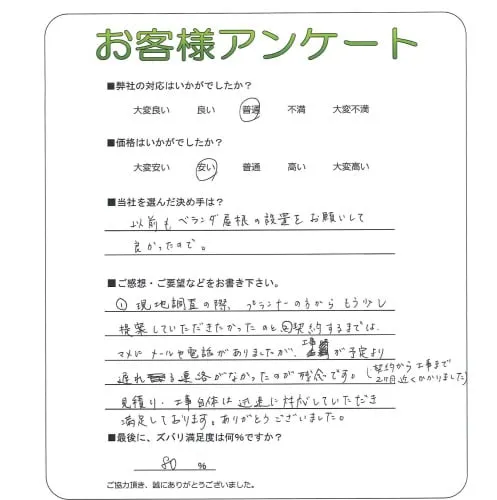 お客様アンケート
■弊社の対応はいかがでしたか？
大変良い 良い 普通 不満 大変不満
■価格はいかがでしたか？
大変安い 安い 普通 高い 大変高い
■当社を選んだ決め手は？
以前もベランダ屋根の設置をお願いして
良かったので。
■ご感想・ご要望などをお書き下さい。
①現地調査の際、プランナーの方からもう少し
提案していただきたかったのと②契約するまでは、
マメにメールや電話がありましたが、工事 が予定より
遅れ る連絡がなかったのが残念です。(契約から工事まで
2ヶ月近くかかりました)
見積り・工事自体は迅速に対応していただき
満足しております。ありがとうございました。
■最後に、ズバリ満足度は何%ですか？
80 %
ご協力頂き、誠にありがとうございました。